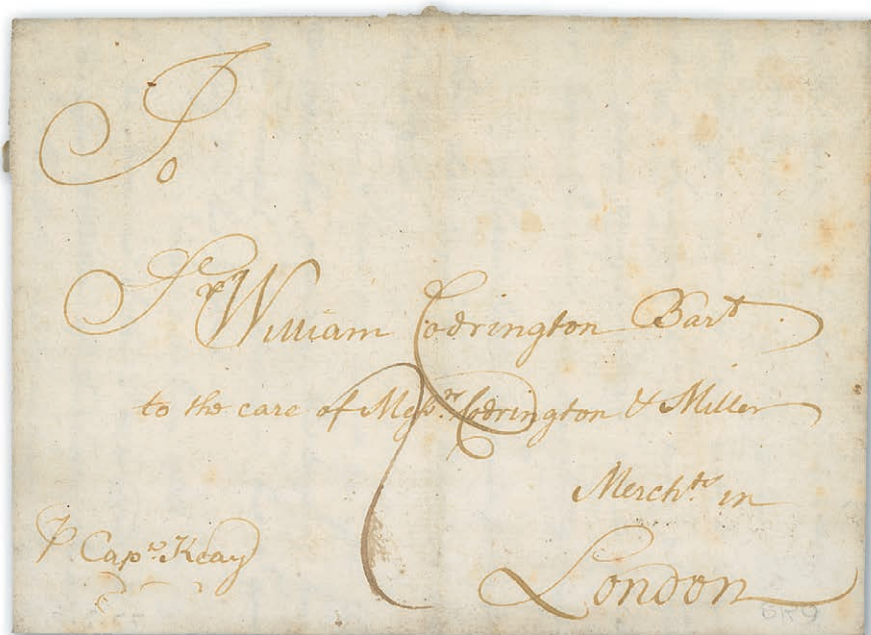 To
Sr William Codrington Bart
to the care of Messrs Codrington & Miller
Merchts in
London
P Capn Keay